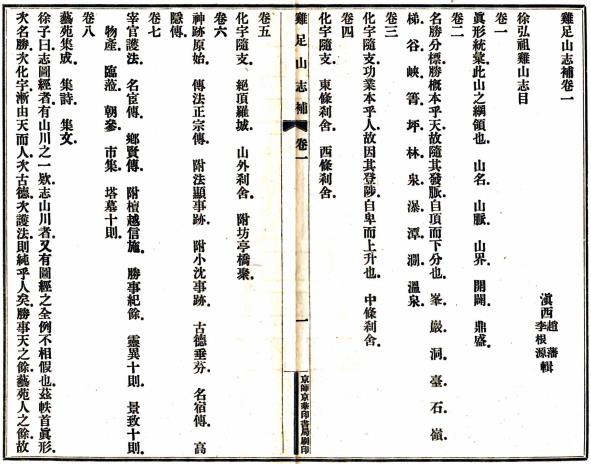 雞足山志補卷一
滇西趙藩李根源輯
徐弘祖雞山志目
卷一
眞形統彙此山之綱領也 山名 山脈 山界 開闢 鼎盛
卷二
名勝分標勝概本乎天故隨其發脈自頂而下分也 峯 巖 洞 臺 石 嶺
梯 谷 峽 箐 坪 林 泉 瀑 潭 澗 溫泉
卷三
化宇隨支功業本乎人故因其登陟自卑而上升也 中條刹舍
卷四
化宇隨支 東條刹舍 西條刹舍
雞足山志補 卷一 一 京師京華印書局刷印
卷五
化宇隨支 絕頂羅城 山外刹舍 附坊亭橋聚
卷六
神跡原始 傳法正宗傳 附法顯事跡 附小沈事跡 古德垂芬 名宿傳 高
隱傳
卷七
宰官護法 名宦傳 鄉賢傳 附檀越信施 勝事紀餘 靈異十則 景致十則
物產 臨蒞 朝參 市集 塔墓十則
卷八
藝苑集成 集詩 集文
徐子曰志圖經者有山川之一款志山川者又有圖經之全例不相假也茲帙首眞形
次名勝次化宇漸由天而人次古德次護法則純乎人矣勝事天之餘藝苑人之餘故